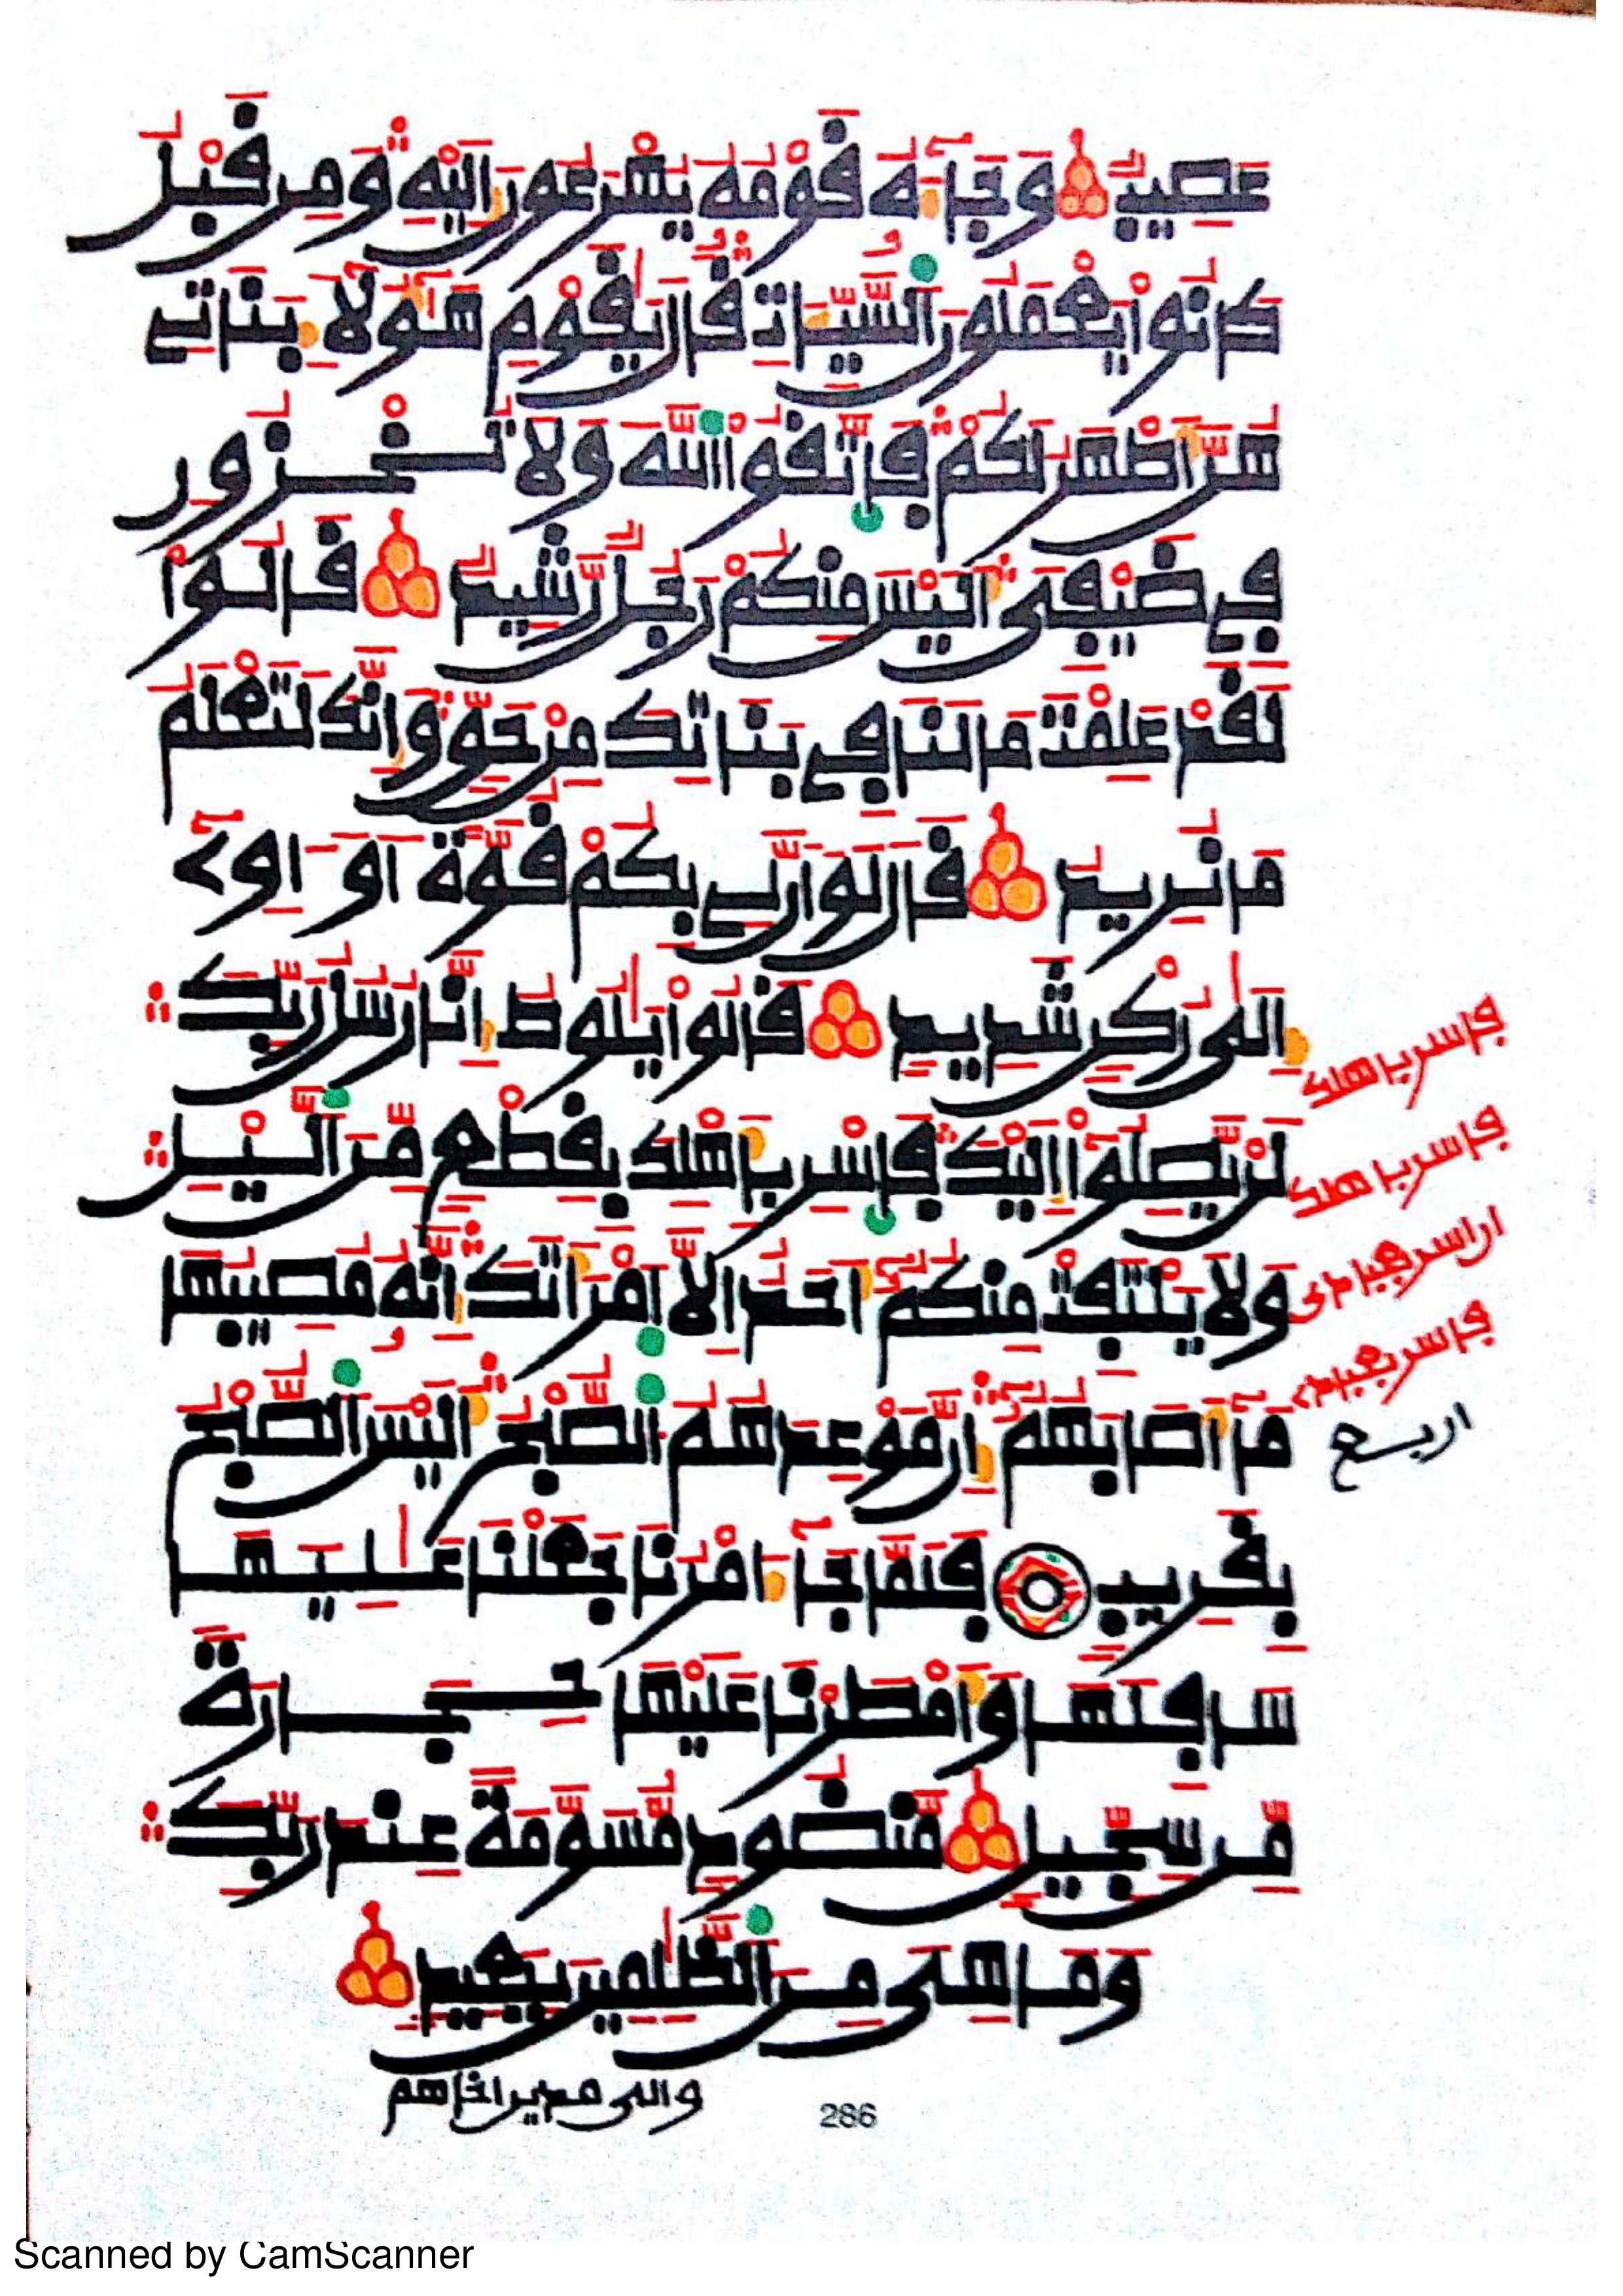 عَصِيبٌ وَجَآءَهُ قَوْمُهُ يُهْرَعُونَ إِلَيْهِ وَمِن قَبْلُ
كَانُوا يَعْمَلُونَ السَّيِّـَٔاتِ قَالَ يَٰقَوْمِ هَٰٓؤُلَآءِ بَنَاتِي
هُنَّ أَطْهَرُ لَكُمْ فَاتَّقُوا اللَّهَ وَلَا تُخْزُونِ
فِي ضَيْفِي أَلَيْسَ مِنكُمْ رَجُلٌ رَّشِيدٌ قَالُوا
لَقَدْ عَلِمْتَ مَا لَنَا فِي بَنَاتِكَ مِنْ حَقٍّ وَإِنَّكَ لَتَعْلَمُ
مَا نُرِيدُ قَالَ لَوْ أَنَّ لِي بِكُمْ قُوَّةً أَوْ ءَاوِي
إِلَىٰ رُكْنٍ شَدِيدٍ قَالُوا يَٰلُوطُ إِنَّا رُسُلُ رَبِّكَ
لَنْ يَّصِلُوا إِلَيْكَ فَاسْرِ بِأَهْلِكَ بِقِطْعٍ مِّنَ الَّيْلِ
وَلَا يَلْتَفِتْ مِنكُمْ أَحَدٌ إِلَّا امْرَأَتَكَ إِنَّهُ مُصِيبُهَا
مَآ أَصَابَهُمْ إِنَّ مَوْعِدَهُمُ الصُّبْحُ أَلَيْسَ الصُّبْحُ
بِقَرِيبٍ فَلَمَّا جَآءَ أَمْرُنَا جَعَلْنَا عَٰلِيَهَا
سَافِلَهَا وَأَمْطَرْنَا عَلَيْهَا حِجَارَةً
مِّن سِجِّيلٍ مَّنضُودٍ مُّسَوَّمَةً عِندَ رَبِّكَ
وَمَا هِيَ مِنَ الظَّٰلِمِينَ بِبَعِيدٍ
وإلى مدين أخاهم
286
فاسر باهلك
فاسر باهلك
ان اسر بعبادى
فاسر بعبادى
اربع
Scanned by CamScanner